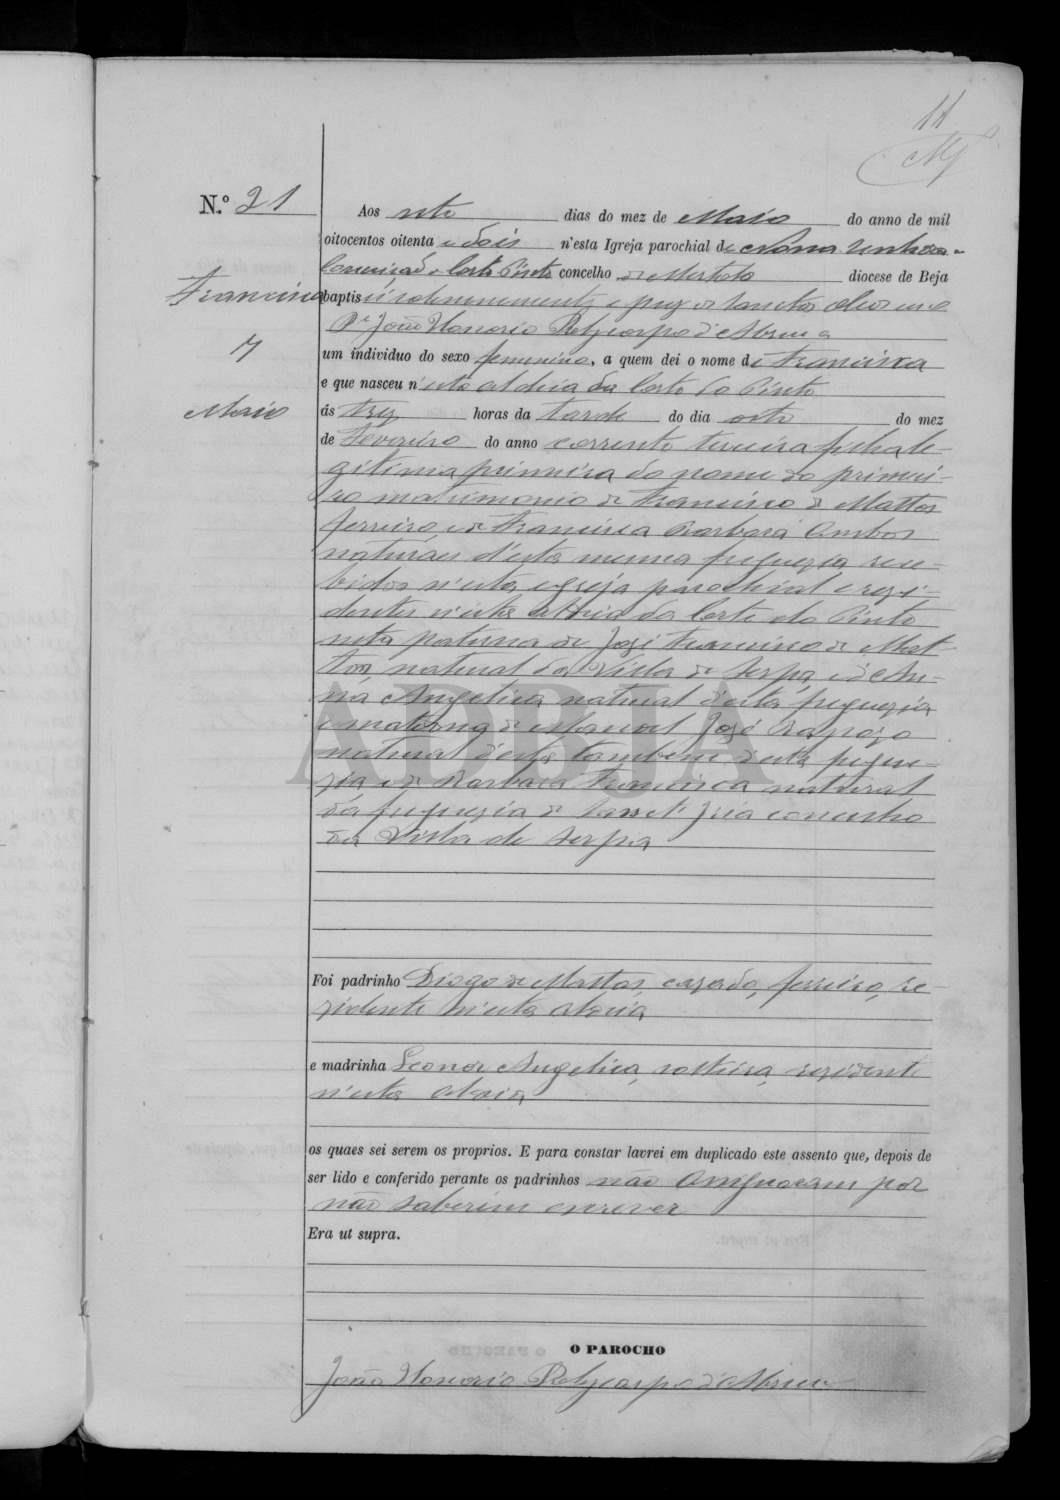 11
N.º 21
Aos sete dias do mez de Maio do anno de mil
oitocentos oitenta e dois n'esta Igreja parochial de Nossa Senhora da
Conceição de Corte Pinto concelho de Mertola diocese de Beja
Francisca
baptisei solemnemente e puz os Sanctos Oleos eu o
P.e João Honorio Polycarpo d'Abreu a
7
um individuo do sexo femenino, a quem dei o nome de Francisca
e que nasceu n'esta aldeia da Corte do Pinto
Maio
ás trez horas da tarde do dia oito do mez
de Fevereiro do anno corrente terceira filha le-
gitima primeira do nome do primei-
ro matrimonio de Francisco de Mattos
ferreiro e de Francisca Barbara ambos
naturaes d'esta mesma freguezia rece-
bidos n'esta egreja parochial e rezi-
dentes n'esta aldeia da Corte do Pinto
neta paterna de José Francisco de Mat-
tos, natural da Villa de Serpa, e d'An-
na Angelica natural d'esta freguezia
e materna de Manoel José Rapozo
natural d'esta tambem d'esta fregue-
zia e de Barbara Francisca natural
da freguezia de concelho
da Villa de Serpa
ADBJA
Foi padrinho Diogo de Mattos cazado, ferreiro, re-
zidente n'esta aldeia
e madrinha Leonor Angelica, solteira, rezidente
n'esta aldeia
os quaes sei serem os proprios. E para constar lavrei em duplicado este assento que, depois de
ser lido e conferido perante os padrinhos não assignaram por
não saberem escrever
Era ut supra.
O PAROCHO
João Honorio Polycarpo d'Abreu